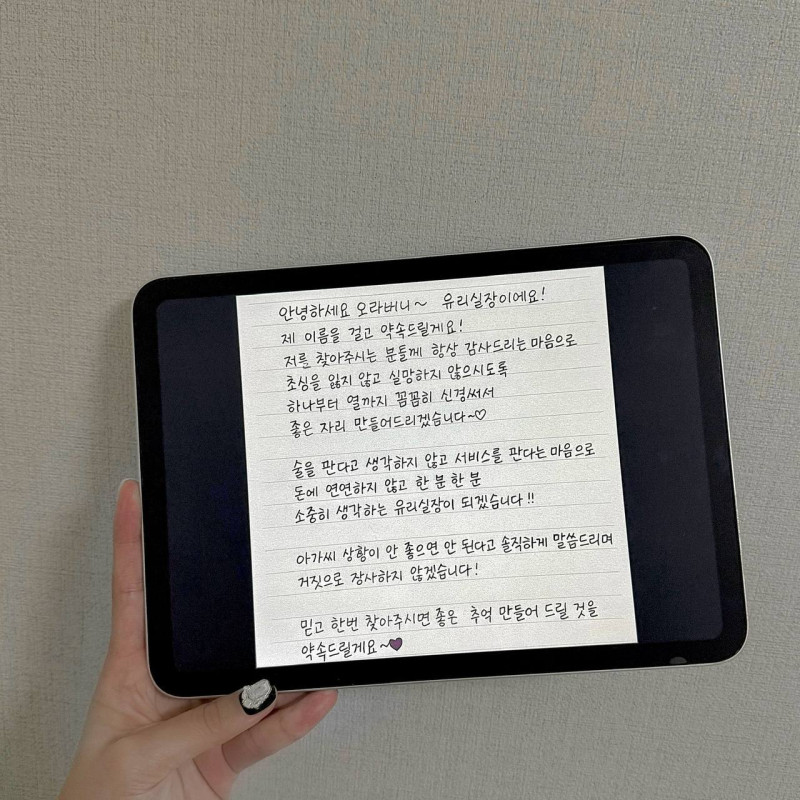 안녕하세요 오라버니~ 유리실장이에요!
제 이름을 걸고 약속드릴게요!
저를 찾아주시는 분들께 항상 감사드리는 마음으로
초심을 잃지 않고 실망하지 않으시도록
하나부터 열까지 꼼꼼히 신경써서
좋은 자리 만들어드리겠습니다~♡
술을 판다고 생각하지 않고 서비스를 판다는 마음으로
돈에 연연하지 않고 한 분 한 분
소중히 생각하는 유리실장이 되겠습니다!!
아가씨 상황이 안 좋으면 안 된다고 솔직하게 말씀드리며
거짓으로 장사하지 않겠습니다!
믿고 한번 찾아주시면 좋은 추억 만들어 드릴 것을
약속드릴게요~💜